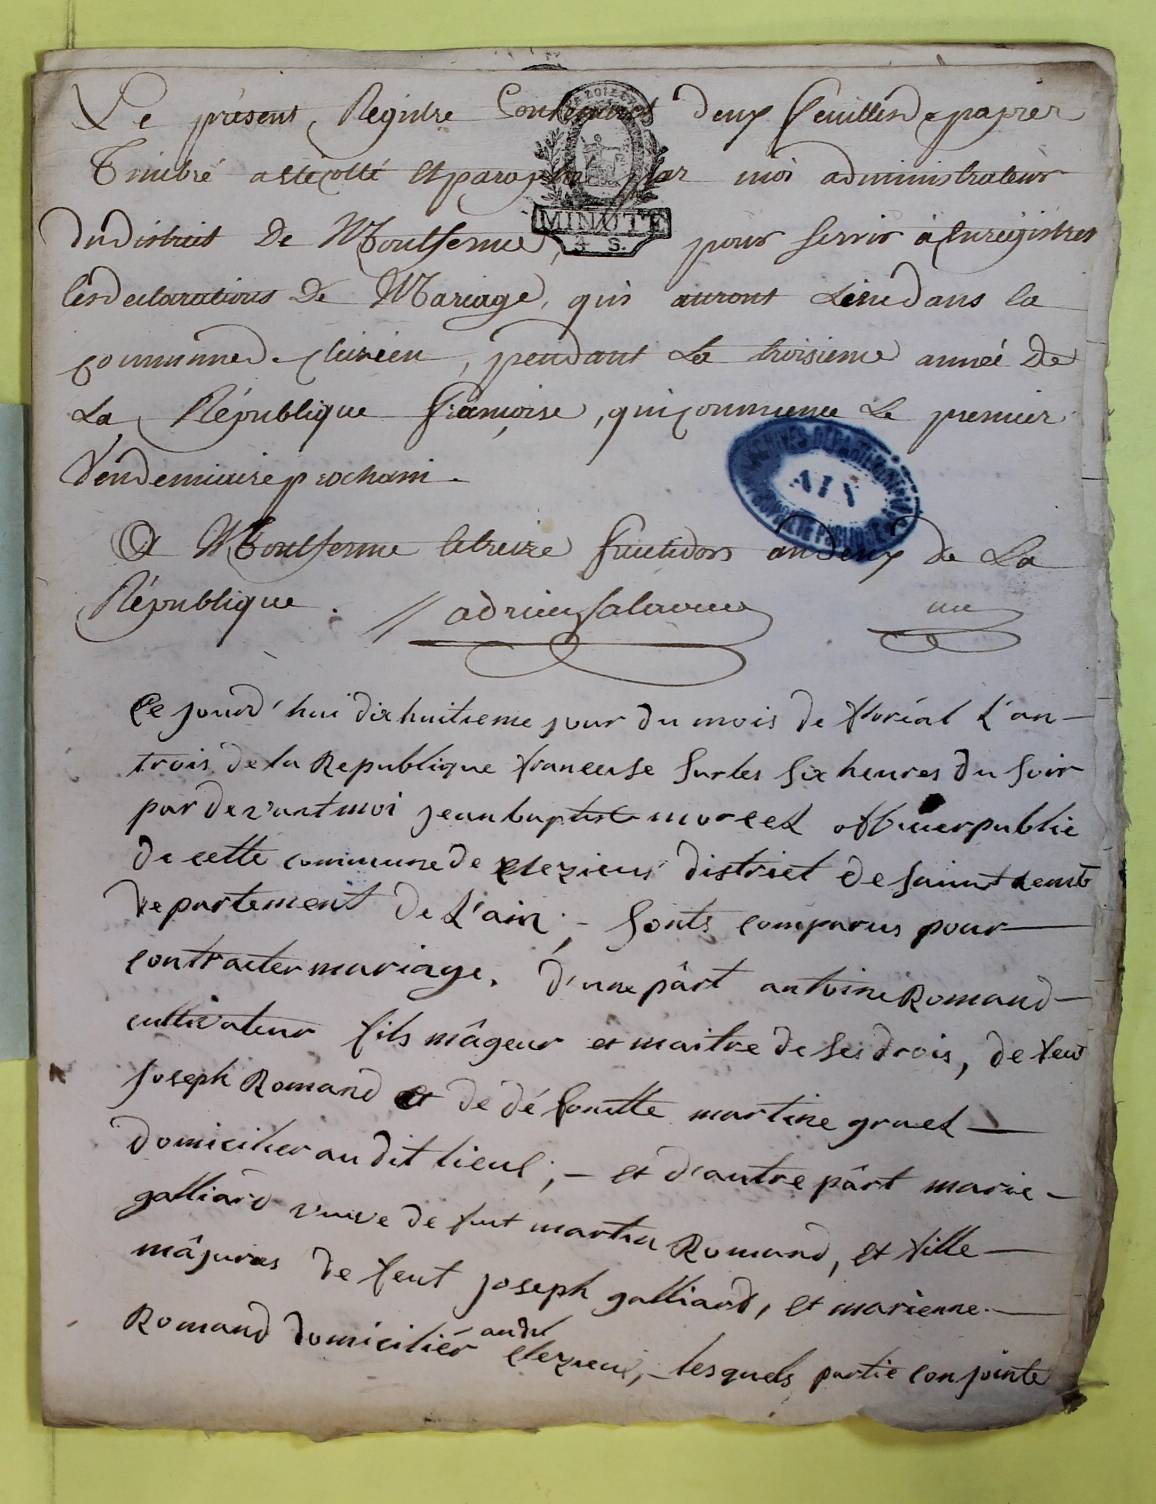 Le présent Registre Contenant deux feuilles de papier
Timbré a été cotté et paraphé par moi administrateur
MINUTE
4 S.
du district de Montferme, pour servir à Enregistrer
les declarations de Mariage, qui auront Lieu dans la
commune de Cleizieu, pendant La troisieme année de
La République françoise, qui commence Le premier
Vendemiaire prochain.
AIN
A Montferme le treize fructidor an deux de La
République. adrien
Ce jourd'hui dix huitieme jour du mois de floréal L'an
trois de la Republique francense sur les six heures du soir
par devant moi jean baptiste morel officier public
de cette commune de clezieus district de saint
departement de L'ain; - sonts comparus pour
contracter mariage. D'une pârt antoine Romand
cultivateur fils mâgeur et maitre de ses drois, de feut
Joseph Romand et de défontte martine gruel
domicilier au dit lieut; - et d'autre pârt marie
galliard veuve de feut martin Romand, et fille
mâjures de feut joseph galliard, et marienne
Romand domiciliér audit clezieut, - lesquels partie conjointe